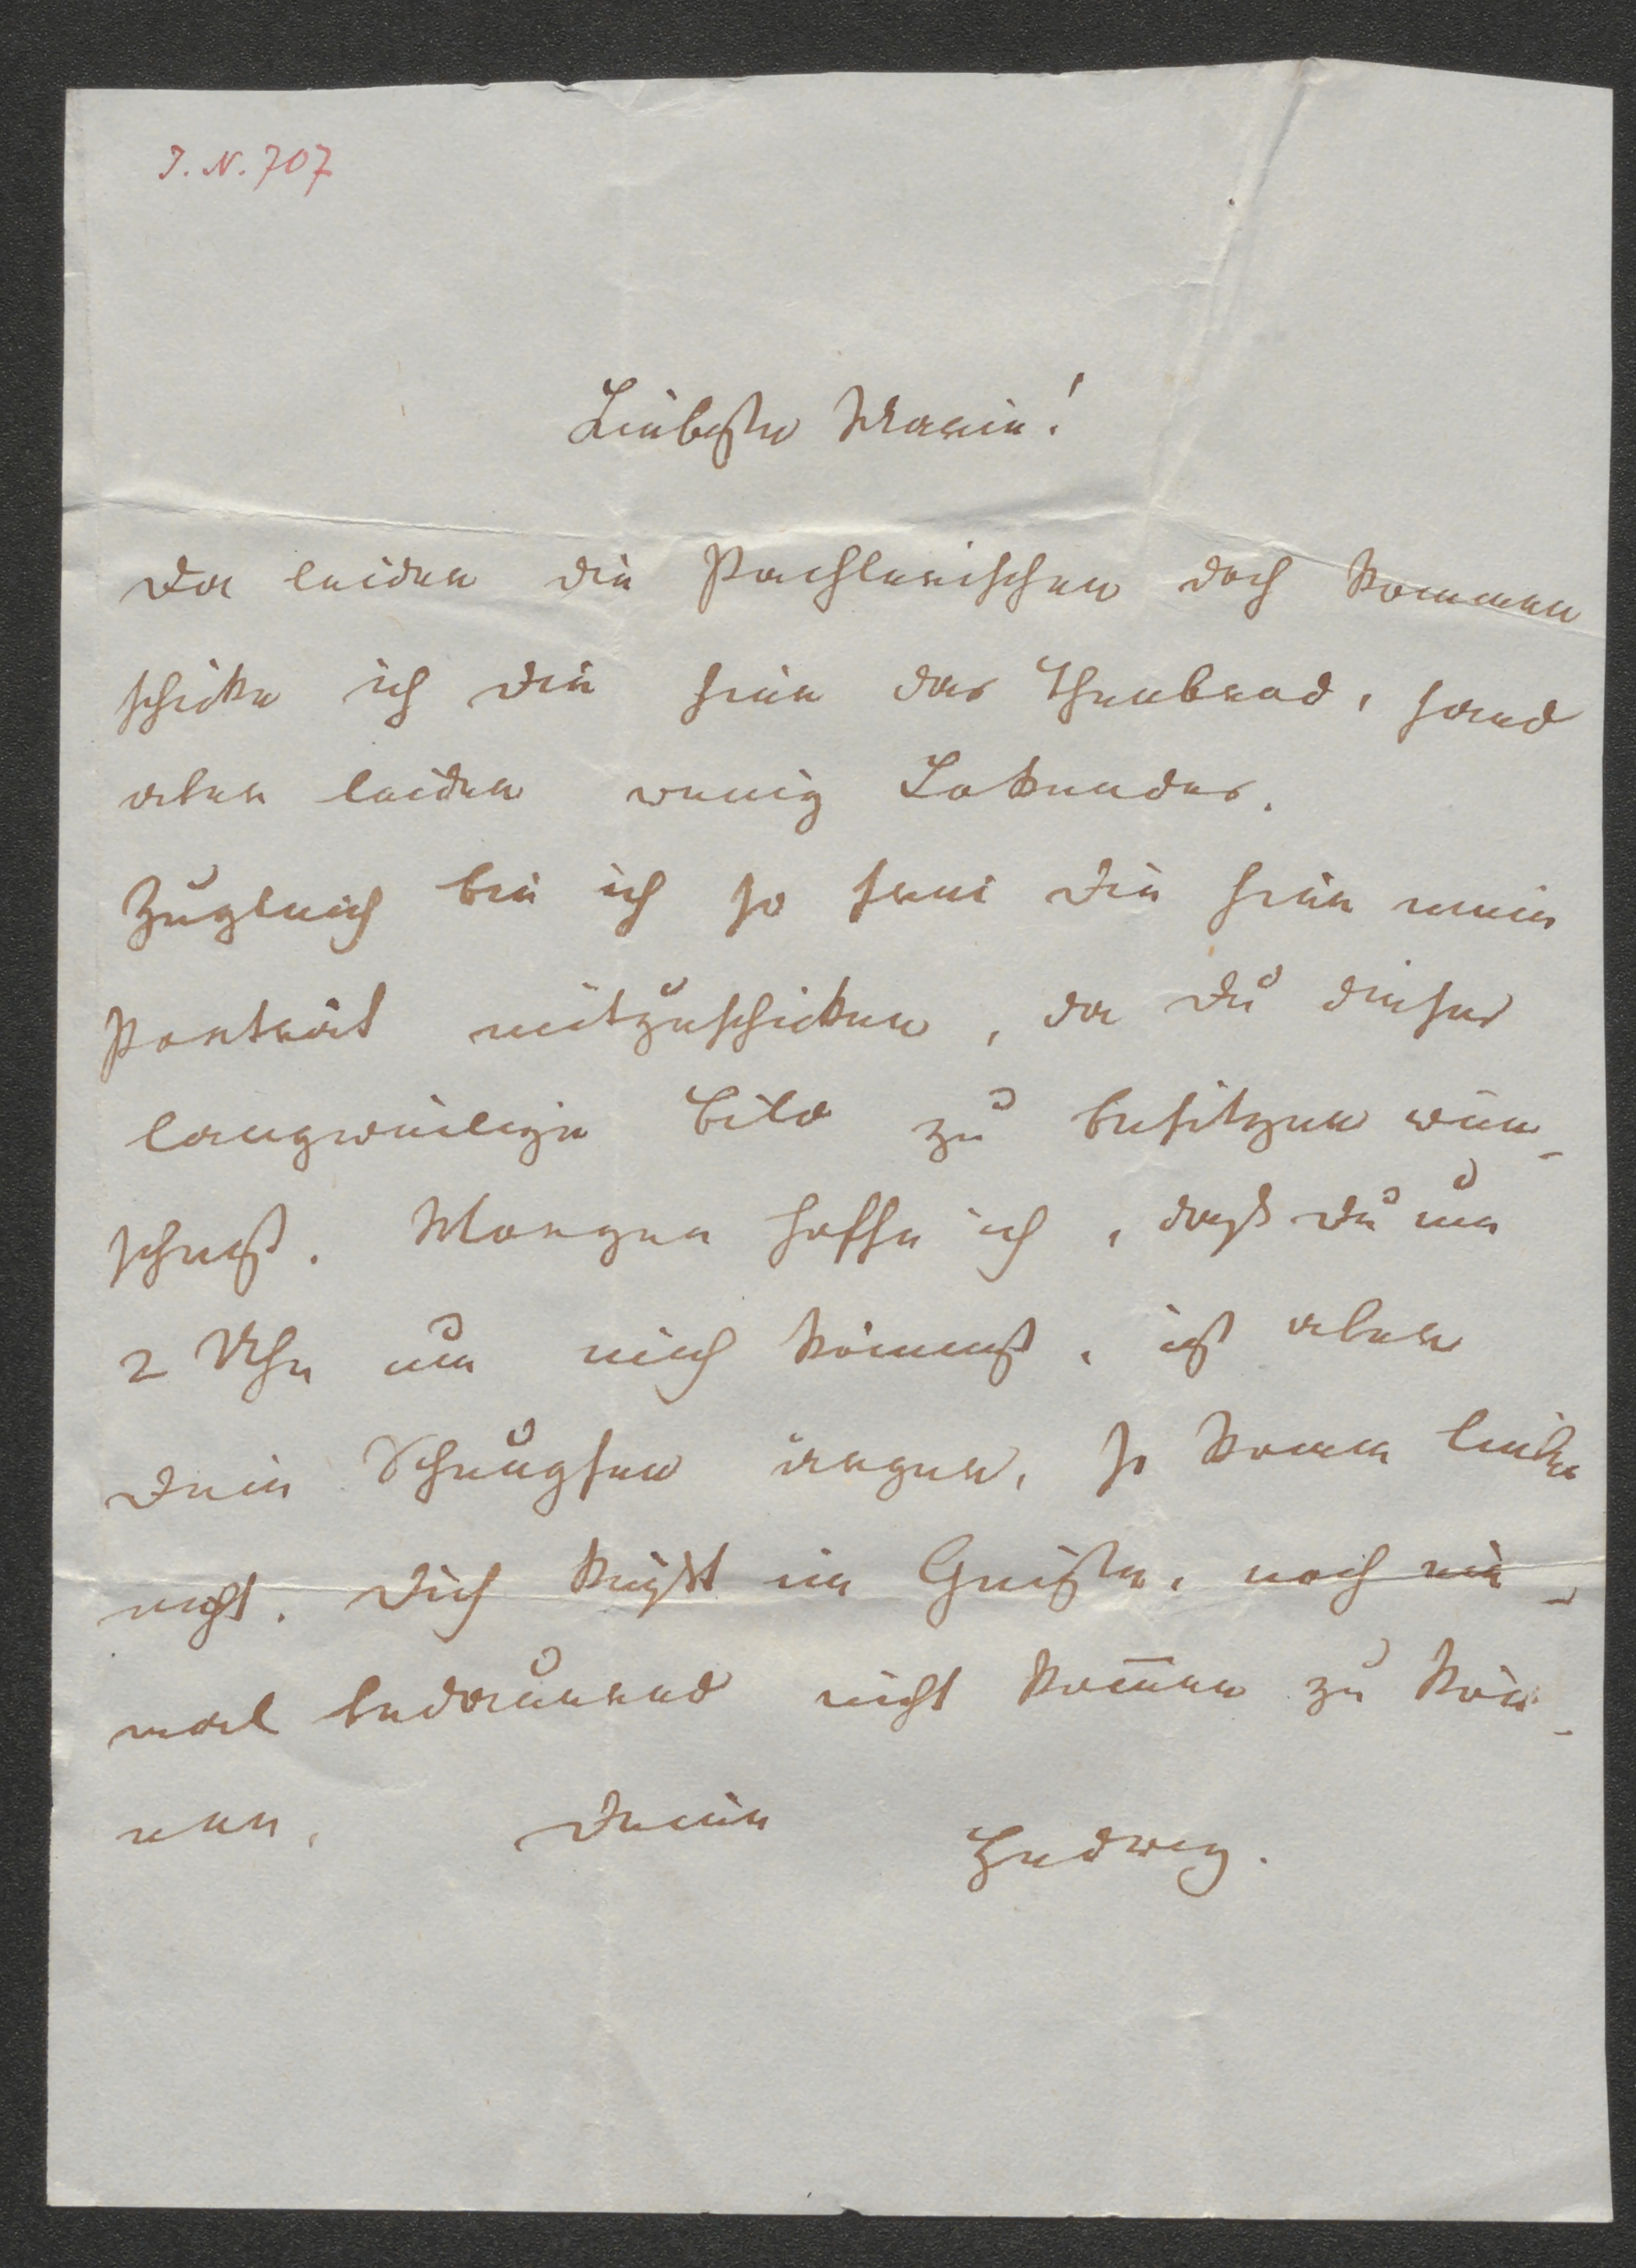 I. N. 707
Liebste Marie!
Da leider die Pachlerischen doch kommen
schicke ich dir hier das Theebrod, fand
aber leider wenig Lokendes.
Zugleich bin ich so frei dir hier mein
Porträt mitzuschicken, da du dieses
langweilige Bild zu besitzen wün-
schest. Morgen hoffe ich, daß du um
2 Uhr um mich kömmst, ist aber
dein Schnupfen ärger, so komm lieber
nicht. Dich küßt im Geiste, noch ein-
mal bedauernd nicht kom̄en zu kön-
nen, deine Hedwig.